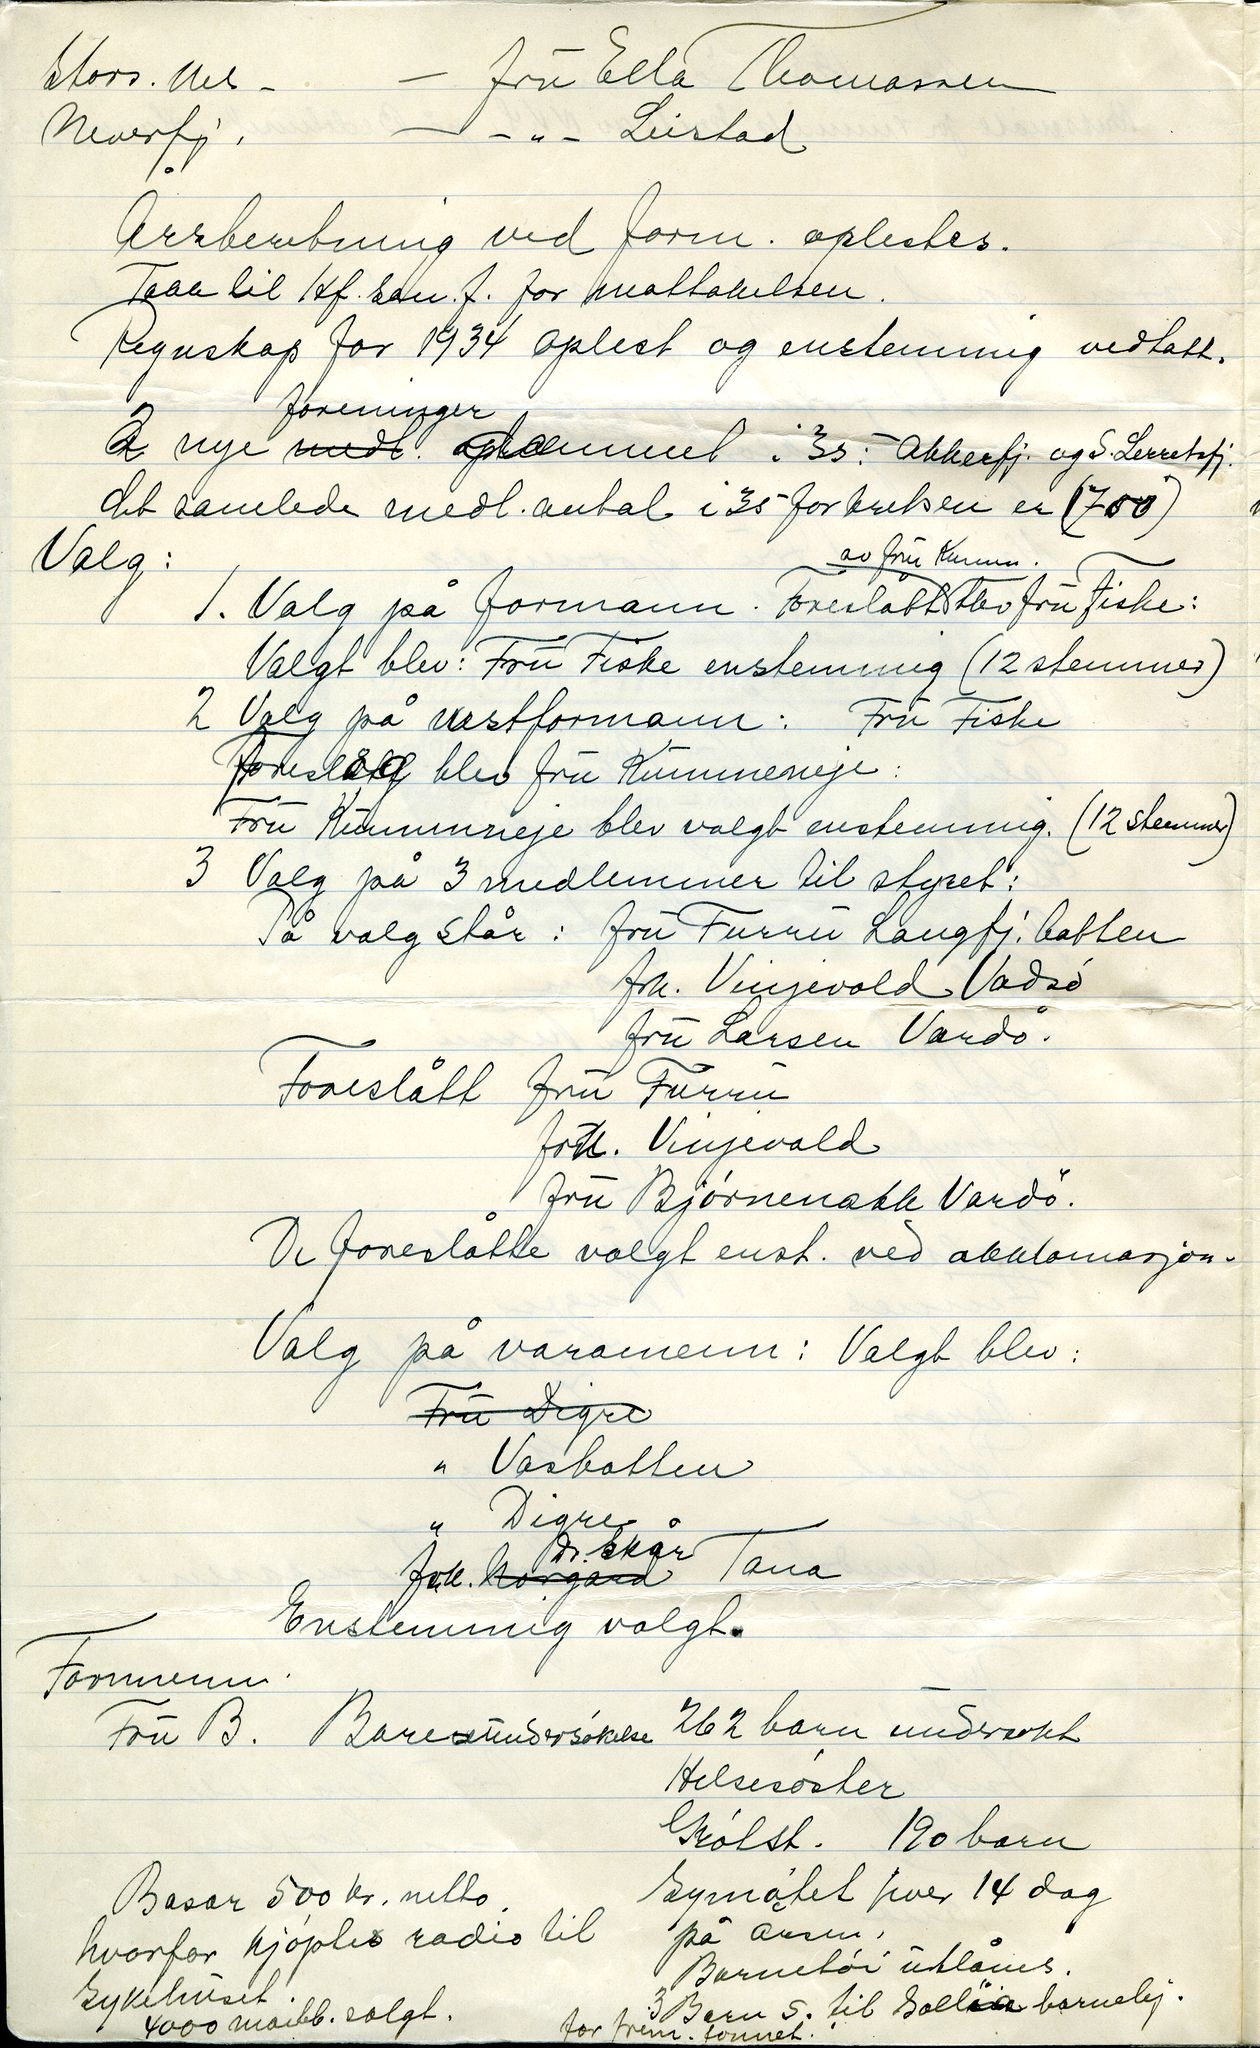 Stors. Nes - — fru Ella Thomassen
Neverfj. — - " - Leistad
Årsberetning ved form. oplestes.
Takk til Hf. san. f. for mottakelsen.
Regnskap for 1934 oplest og enstemmig vedtatt.
foreninger
2 nye medl. i 35: Akkarfj. og S. Lerretsfj.
det samlede medl. antal i 35 for kretsen er (1700)
Valg:
av fru Kumm.
1. Valg på formann. Foreslått blev fru Fiske:
Valgt blev: Fru Fiske enstemmig (12 stemmer)
2 Valg på nestformann: Fru Fiske
foreslog blev fru Kummeneje:
Fru Kummeneje blev valgt enstemmig. (12 stemmer)
3 Valg på 3 medlemmer til styret:
På valg står: fru Furru Langfj. botten
frk. Vinjevold Vadsö
fru Larsen Vardö.
Foreslått fru Furru
frk. Vinjevold
fru Björnenakk Vardö.
De foreslåtte valgt enst. ved akklamasjon.
Valg på varamenn: Valgt blev:
Fru Digre
" Vasbotten
" Digre
Dr. Skår
frk. Norgård Tana
Enstemmig valgt.
Formenn.
Fru B. Barneundersökelse 262 barn undersökt
Helsesöster
190 barn
Basar 500 kr. netto
Symötet hver 14 dag
hvorfor kjöptes radio til
på
Sykehuset.
Barnetöi utlånes.
4000 maibl. solgt.
3 Barn s. til barnehj.
for frem.